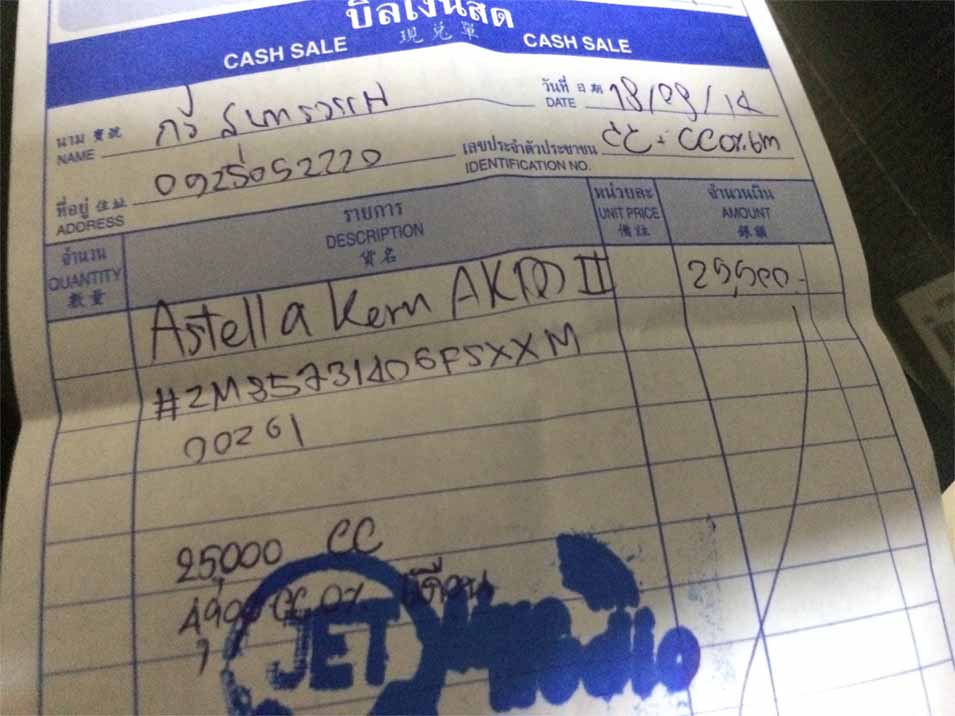 บิลเงินสด
CASH SALE 現兌單 CASH SALE
วันที่ 日期
DATE 18/09/14
นาม 寶號
NAME กวี
เลขประจำตัวประชาชน
IDENTIFICATION NO. CC + CC0%6m
ที่อยู่ 住址
ADDRESS 0925052220
จำนวน
QUANTITY
數量
รายการ
DESCRIPTION
貨名
หน่วยละ
UNIT PRICE
備註
จำนวนเงิน
AMOUNT
銀額
Astell a Kern AK100 II 29,900.-
#2M35731406F5XXM
00261
25,000 CC
4,900 CC 0% 6เดือน
JET Live Audio